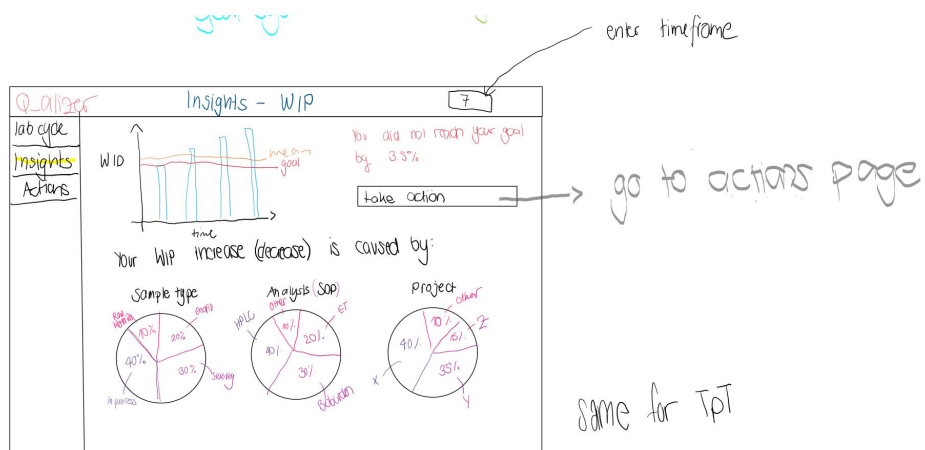 enter timeframe
Q_alizer
Insights - WIP
7
lab cycle
Insights
Actions
WIP
mean
goal
time
You did not reach your goal
by 3.5%.
take action
go to actions page
Your WIP increase (decrease) is caused by:
Sample type
Raw
Material
10%
20%
40%
30%
Stability
in process
Analysis (SOP)
other
ET
HPLC
10%
20%
40%
30%
Bioburden
project
other
Z
10%
15%
40%
35%
X
Y
same for TpT